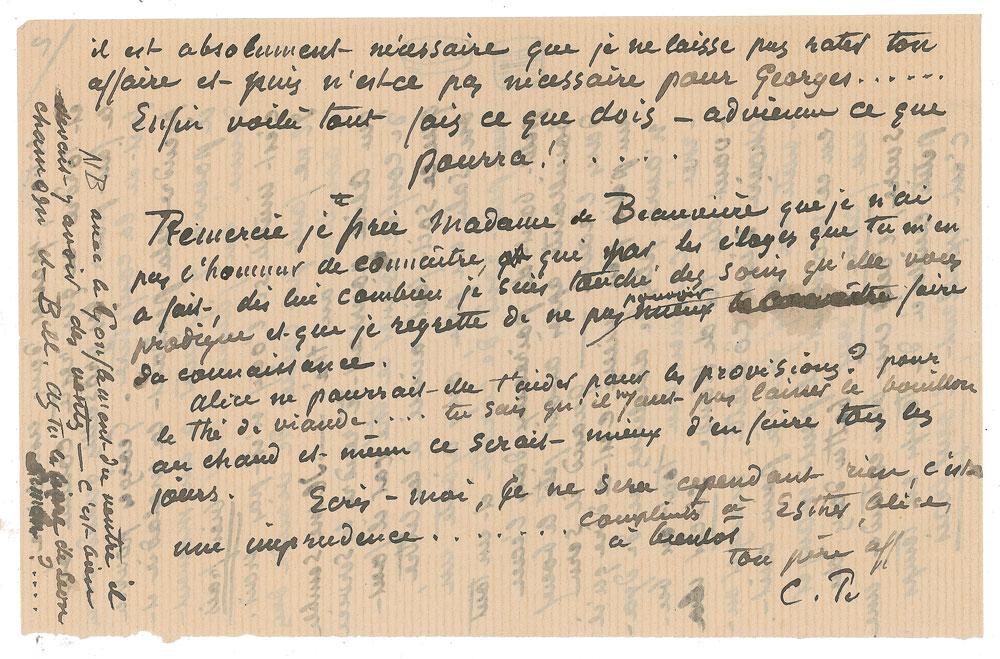 il est absolument nécessaire que je ne laisse pas rater ton
affaire et puis n'est-ce pas nécessaire pour Georges......
Enfin voilà tout fais ce que dois - advienne ce que
pourra!......
Remercie je te prie Madame de Beauvière que je n'ai
pas l'honneur de connaître, et qui par les éloges que tu m'en
a fait, dis lui combien je suis touché des soins qu'elle vous
prodigue et que je regrette de ne pas pouvoir mieux le connaître faire
sa connaissance.
Alice ne pourrait-elle t'aider pour les provisions? pour
le thé de viande.... tu sais qu'il ne faut pas laisser le bouillon
au chaud et même ce serait mieux d'en faire tous les
jours. Ecris-moi, ce ne sera cependant rien, c'est
une imprudence........ compliments à Esther, Alice
à bientôt
ton père aff
C. P.
NB avec le gonflement du ventre il
devait y avoir des vents - c'est bien